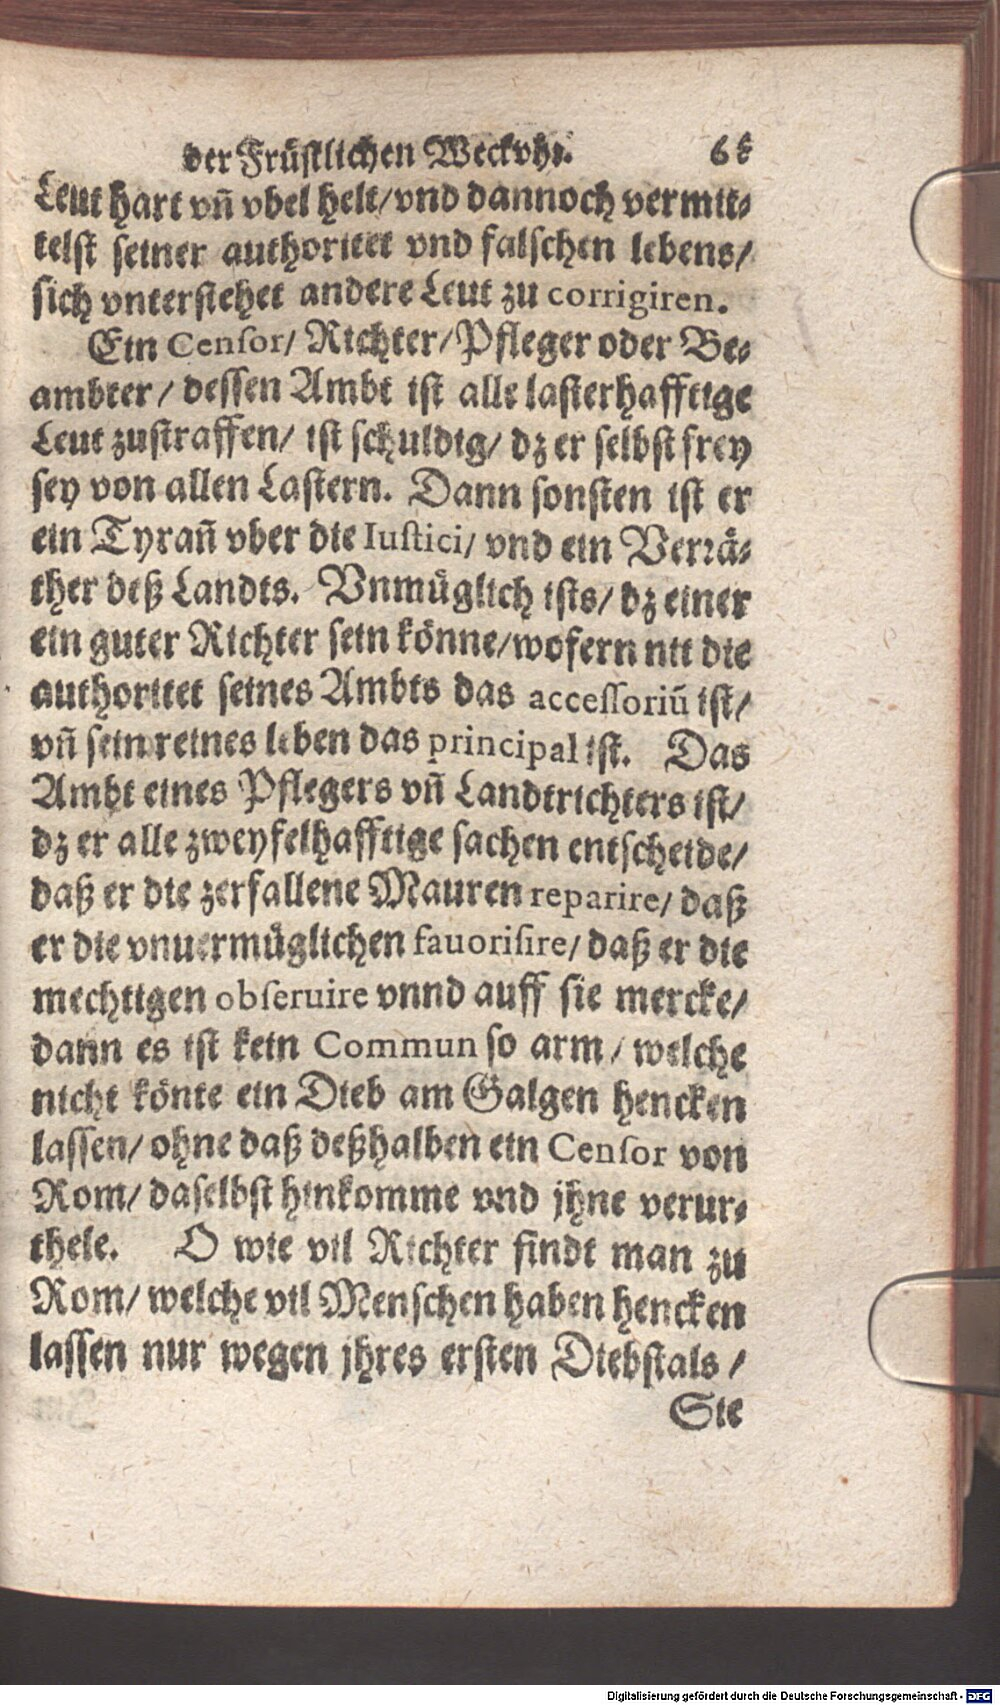 der Früstlichen Weckvhr.
Leut hart vñ vbel helt/vnd dannoch vermit-
telst seiner authoritet vnd falschen lebens/
sich vnterstehet andere Leut zu corrigiren.
Ein Censor/ Richter/Pfleger oder Be-
ambter/ dessen Ambt ist alle lasterhafftige
Leut zustraffen/ ist schuldig/ dz er selbst frey
sey von allen Lastern. Dann sonsten ist er
ein Tyrañ vber die Iustici/ vnd ein Verrä-
ther deß Landts. Vnmüglich ists/ dz einer
ein guter Richter sein könne/wofern nit die
authoritet seines Ambts das accessoriũ ist/
vñ sein reines leben das principal ist. Das
Ambt eines Pflegers vñ Landtrichters ist/
dz er alle zweyfelhafftige sachen entscheide/
daß er die zerfallene Mauren reparire/ daß
er die vnuermüglichen fauorisire/ daß er die
mechtigen obseruire vnnd auff sie mercke/
dann es ist kein Commun so arm/ welche
nicht könte ein Dieb am Galgen hencken
lassen/ ohne daß deßhalben ein Censor von
Rom/ daselbst hinkomme vnd jhne verur-
thele. O wie vil Richter findt man zu
Rom/ welche vil Menschen haben hencken
lassen nur wegen jhres ersten Diebstals/
Sie
Digitalisierung gefördert durch die Deutsche Forschungsgemeinschaft - DFG